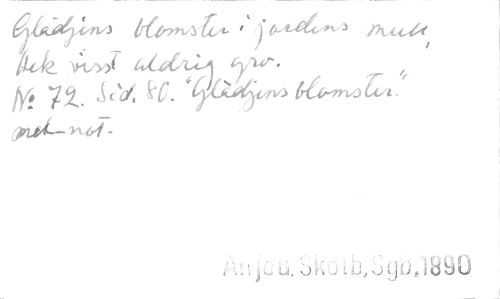 Glädjens blomster i jordens mull,
Ack visst aldrig gro.
No 72. Sid. 80. "Glädjens blomster."
mel-not.
Anjou, Skolb, Sgb, 1890